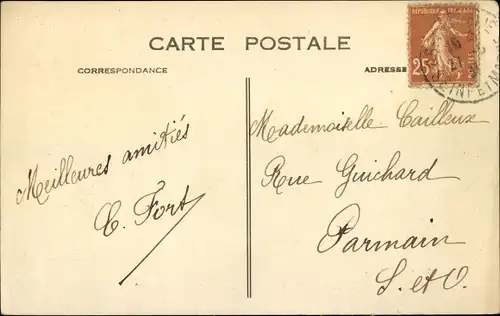 CARTE POSTALE
CORRESPONDANCE
ADRESSE
REPUBLIQUE FRANÇAISE
25
POSTES
Meilleures amitiés
C. Fort
Mademoiselle Cailleux
Rue Guichard
Parmain
S. et O.